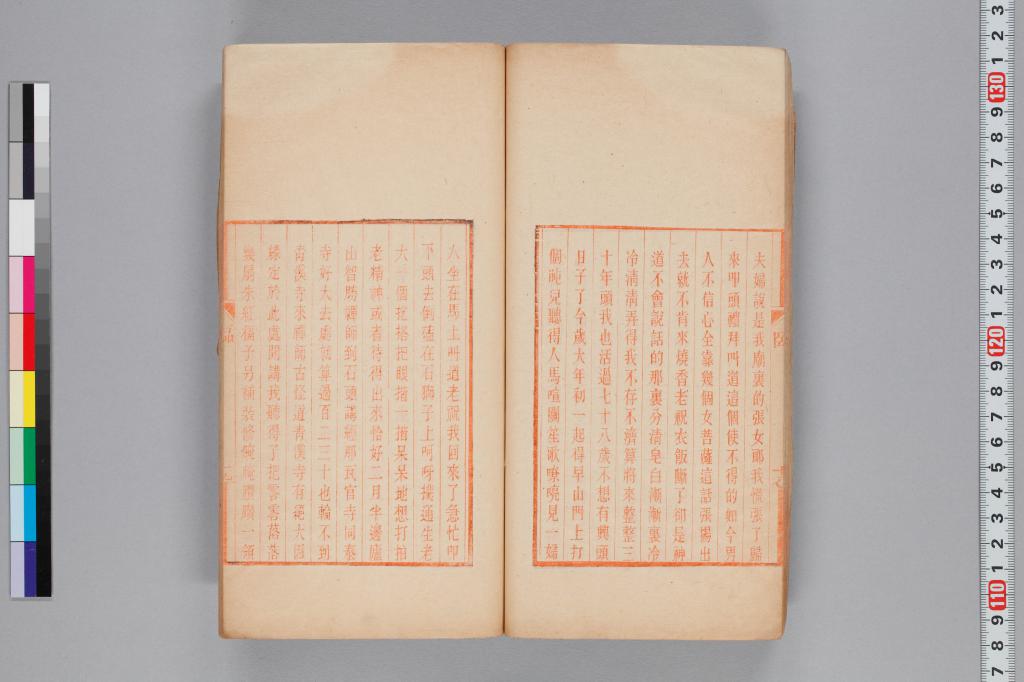 夫婦說是我廟裏的張女郎我慌張了歸
來叩頭禮拜叫道這個使不得的如今男
人不信心全靠幾個女菩薩這話張揚出
去就不肯來燒香老祝衣飯斷了卻是神
道不會說話的那裏分清皂白漸漸裏冷
冷清清弄得我不存不濟算將來整整三
十年頭我也活過七十八歲不想有興頭
日子了今歲大年初一起得早山門上打
個盹兒聽得人馬喧闐笙歌嘹喨見一婦
人坐在馬上叫道老祝我回來了急忙叩
下頭去倒磕在石獅子上呵呵撲通生老
大一個扢搭把眼揩一揩呆呆地想打拍
老精神或者待得出來恰好二月半邊廬
山智勝禪師到石頭講經那瓦官寺同泰
寺好大去處就算過百二三十也輪不到
青溪寺來禪師古怪道青溪寺有絕大因
緣定於此處開講我聽得了把
幾扇朱紅槅子另補裝修 一領
陸
品
130
120
110